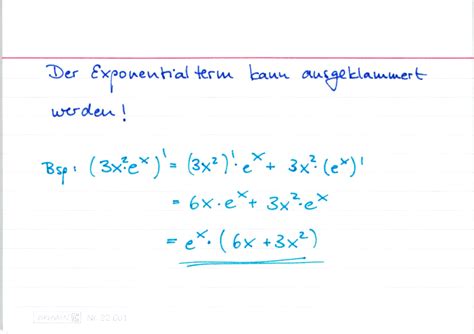 Der Exponentialterm kann ausgeklammert
werden!
Bsp: (3x²·eˣ)' = (3x²)'·eˣ + 3x²·(eˣ)'
= 6x·eˣ + 3x²·eˣ
= eˣ·(6x + 3x²)